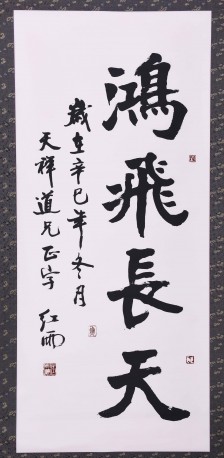 鴻飛長天
歲在辛巳年冬月
天祥道兄正字 红雨